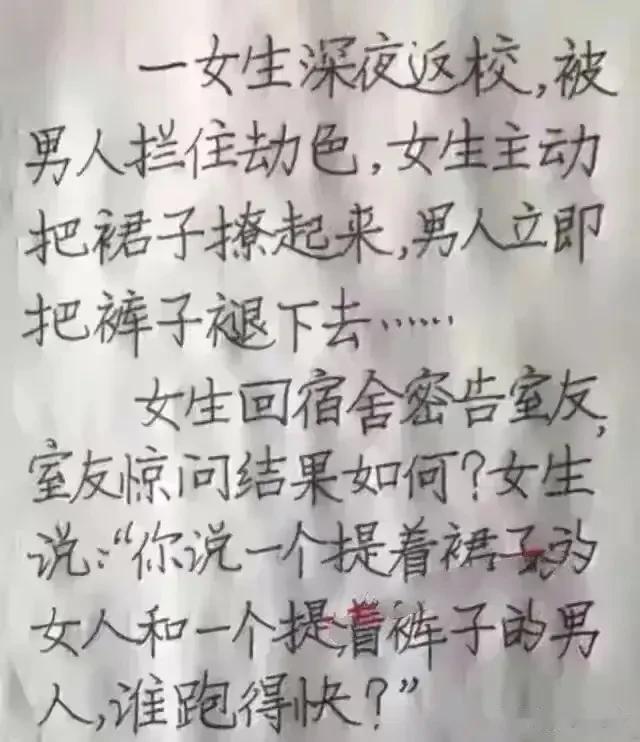 一女生深夜返校，被
男人拦住劫色，女生主动
把裙子撩起来，男人立即
把裤子褪下去……
女生回宿舍密告室友，
室友惊问结果如何？女生
说：“你说一个提着裙子的
女人和一个提着裤子的男
人，谁跑得快？”